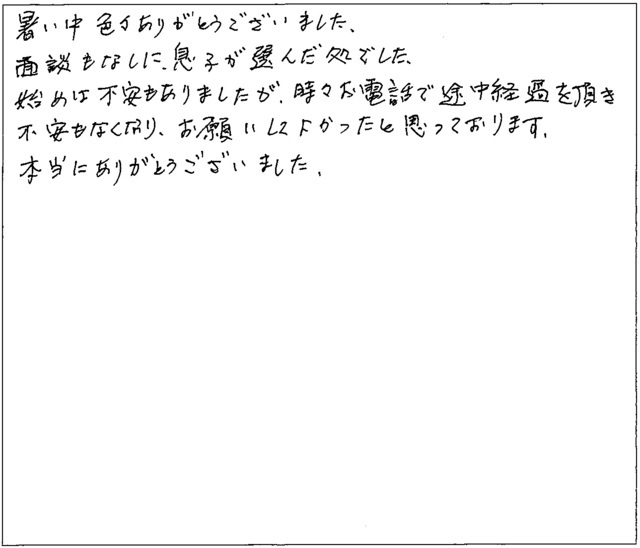 暑い中色々ありがとうございました、
面談もなしに、息子が選んだ処でした、
始めは不安もありましたが、時々お電話で途中経過を頂き
不安もなくなり、お願いしてよかったと思っております。
本当にありがとうございました。